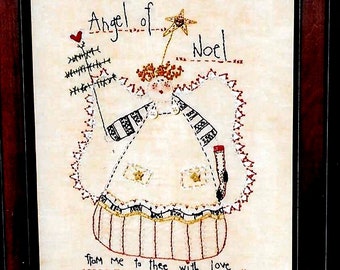 Angel of
Noel
from me to thee with love